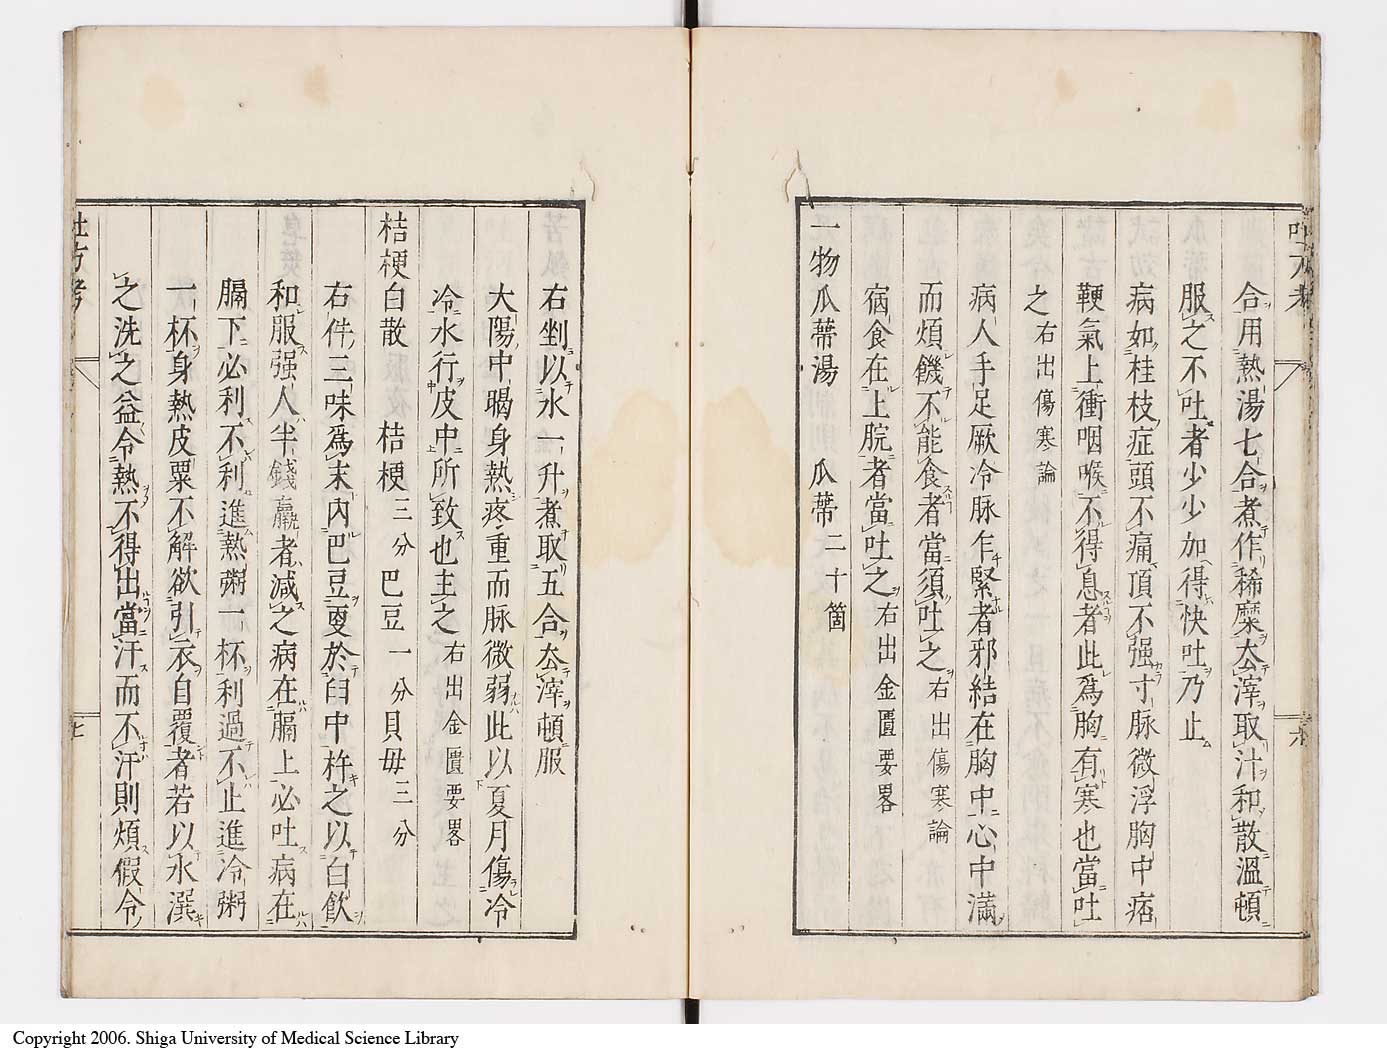 合用熱湯七合煮作稀糜去滓取汁和散溫頓
服之不吐者少少加得快吐乃止
病如桂枝症頭不痛項不强寸脉微浮胸中痞
鞕氣上衝咽喉不得息者此爲胸有寒也當吐
之 右出傷寒論
病人手足厥冷脉乍緊者邪結在胸中心中滿
而煩饑不能食者當須吐之 右出傷寒論
宿食在上脘者當吐之 右出金匱要畧
一物瓜蔕湯 瓜蔕二十箇
右剉以水一升煮取五合去滓頓服
大陽中暍身熱疼重而脉微弱此以夏月傷冷
冷水行皮中所致也主之 右出金匱要畧
桔梗白散 桔梗三分 巴豆一分 貝毋三分
右件三味爲末內巴豆更於臼中杵之以白飮
和服强人半錢羸者減之病在膈上必吐病在
膈下必利不利進熱粥一杯利過不止進冷粥
一杯身熱皮粟不解欲引衣自覆者若以水潠
之洗之益令熱不得出當汗而不汗則煩假令
吐方考
七
Copyright 2006. Shiga University of Medical Science Library